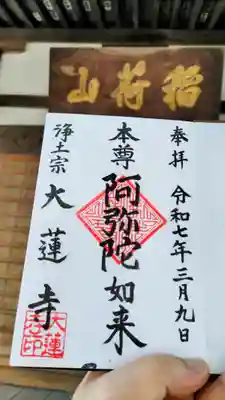 稲荷山
奉拝 令和七年三月九日
本尊
阿弥陀如来
浄土宗 大蓮寺
大蓮寺印